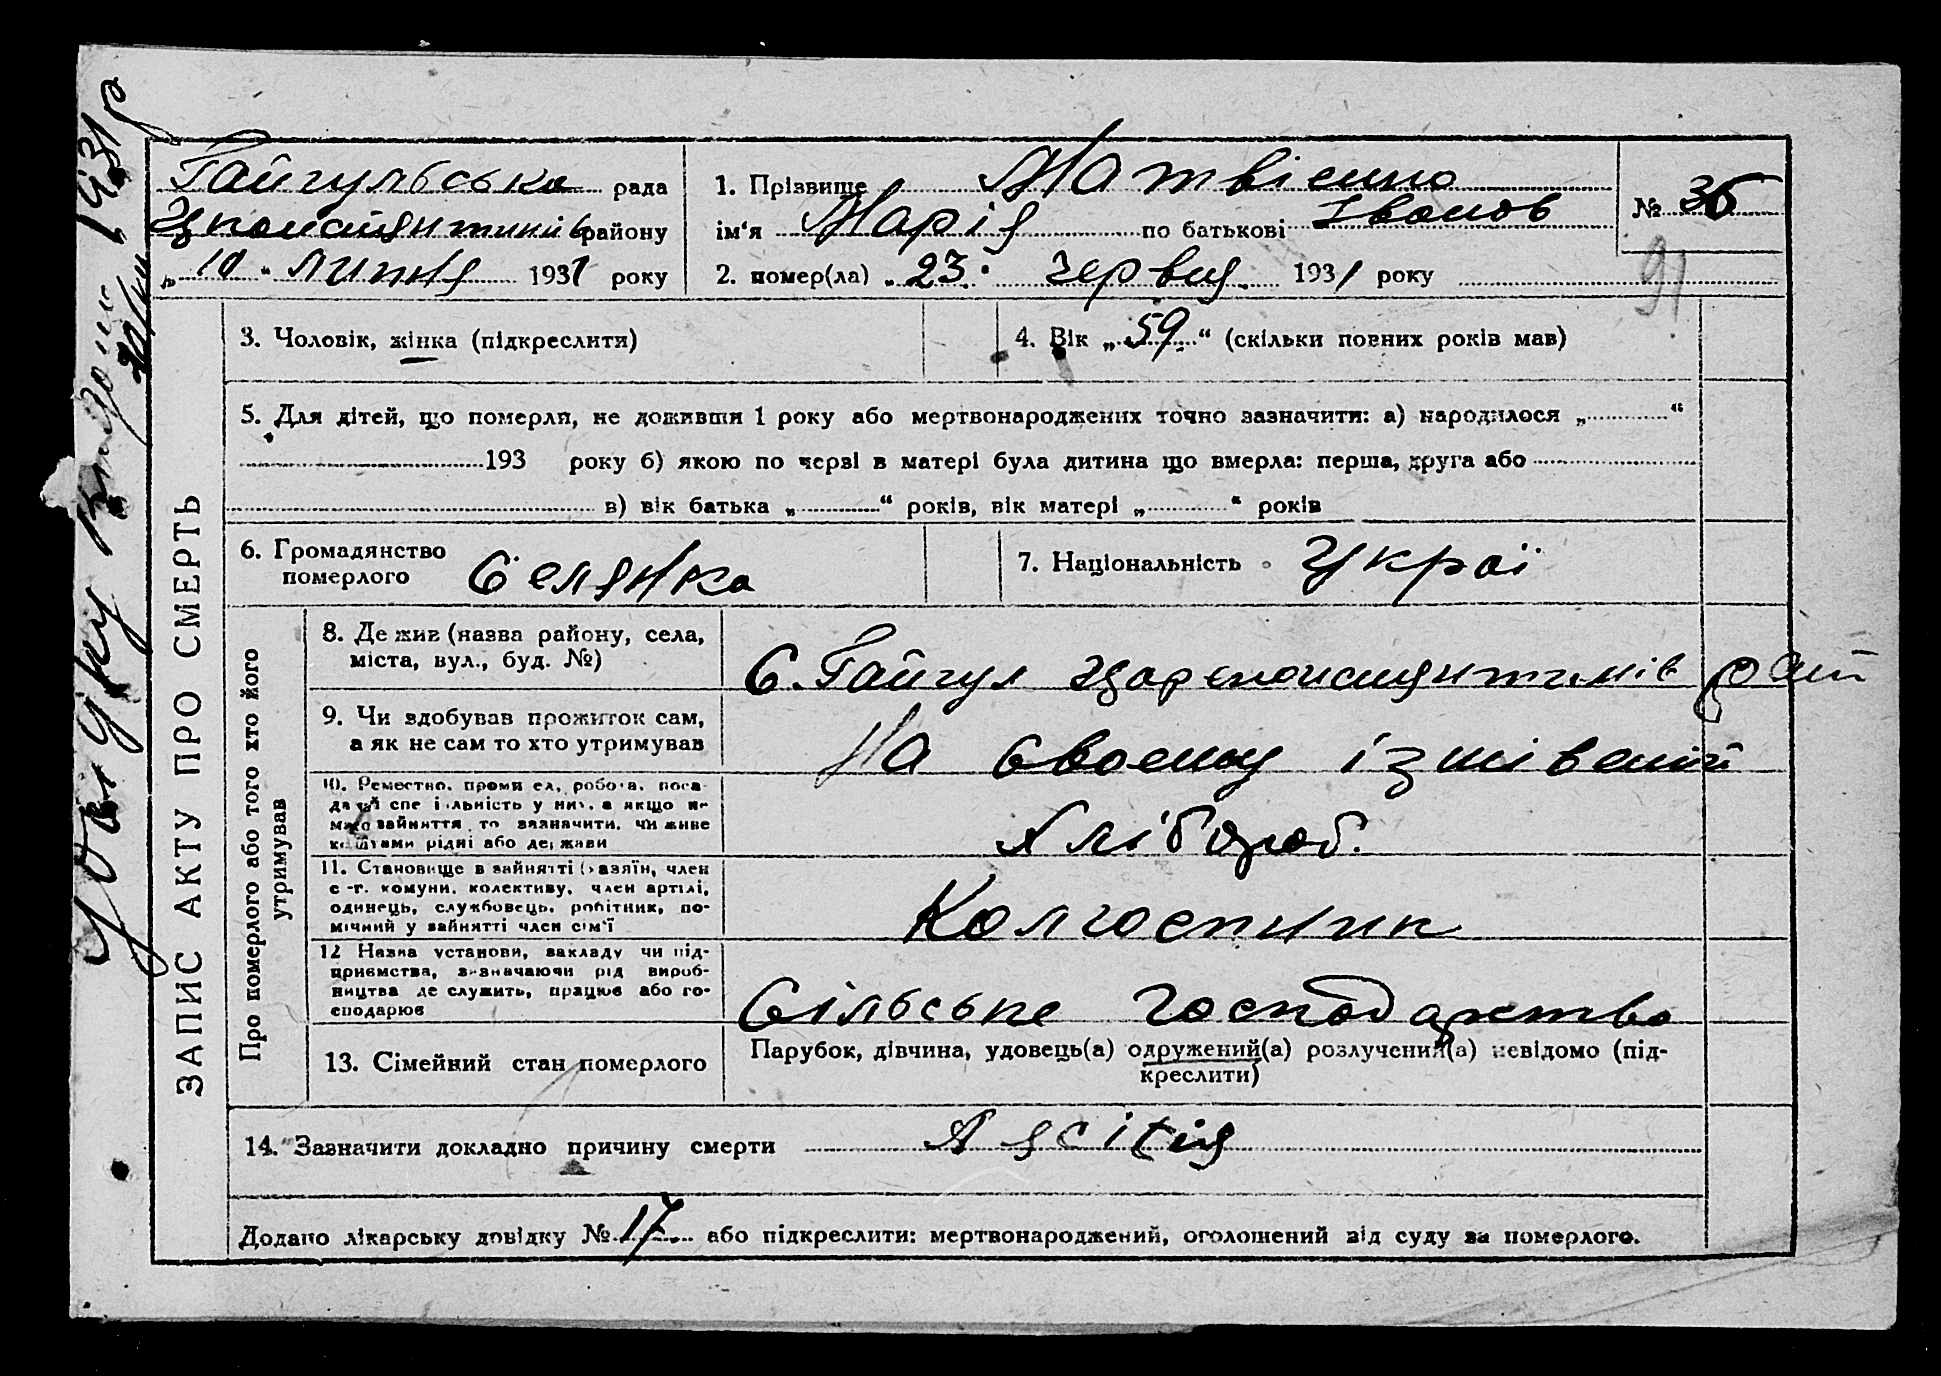 Гайгульська рада
району
„ 10 “ липня 1931 року
1. Прізвище Матвієнко
ім'я Марія по батькові Іванов
2. помер(ла) „ 23 червня 1931 року
№ 36
91
ЗАПИС АКТУ ПРО СМЕРТЬ
3. Чоловік, жінка (підкреслити)
4. Вік „ 59 “ (скільки повних років мав)
5. Для дітей, що померли, не доживши 1 року або мертвонароджених точно зазначити: а) народилося „ “
193 року б) якою по черзі в матері була дитина що вмерла: перша, друга або
в) вік батька „ “ років, вік матері „ “ років
6. Громадянство
померлого Селянка
7. Національність Украї
Про померлого або того хто його
утримував
8. Де жив (назва району, села,
міста, вул., буд. №)
С. Гайгул рай
9. Чи здобував прожиток сам,
а як не сам то хто утримував
На своєму
10. Реместно, промисел, робота, поса-
да чи спеціальність у них, а якщо не
мало зайняття то зазначити, чи живе
коштами рідні або держави
Хлібороб.
11. Становище в зайнятті (хазяїн, член
с.-г. комуни, колективу, член артілі,
одинець, службовець, робітник, по-
мічний у зайнятті член сім'ї
Колгоспник
12 Назва установи, закладу чи під-
приємства, зазначаючи рід вироб-
ництва де служить, працює або го-
сподарює
Сільське господарство
13. Сімейний стан померлого
Парубок, дівчина, удовець(а) одружений(а) розлучений(а) невідомо (під-
креслити)
14. Зазначити докладно причину смерти Ascitis
Додано лікарську довідку № 17. або підкреслити: мертвонароджений, оголошений від суду за померлого.